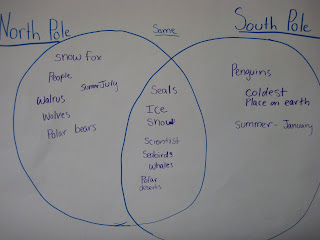 North Pole
Same
South Pole
snow fox
People
Summer July
Walrus
Wolves
Polar bears
Seals
Ice
Snow
Scientist
Seabirds
Whales
Polar
deserts
Penguins
coldest
Place on earth
Summer - January